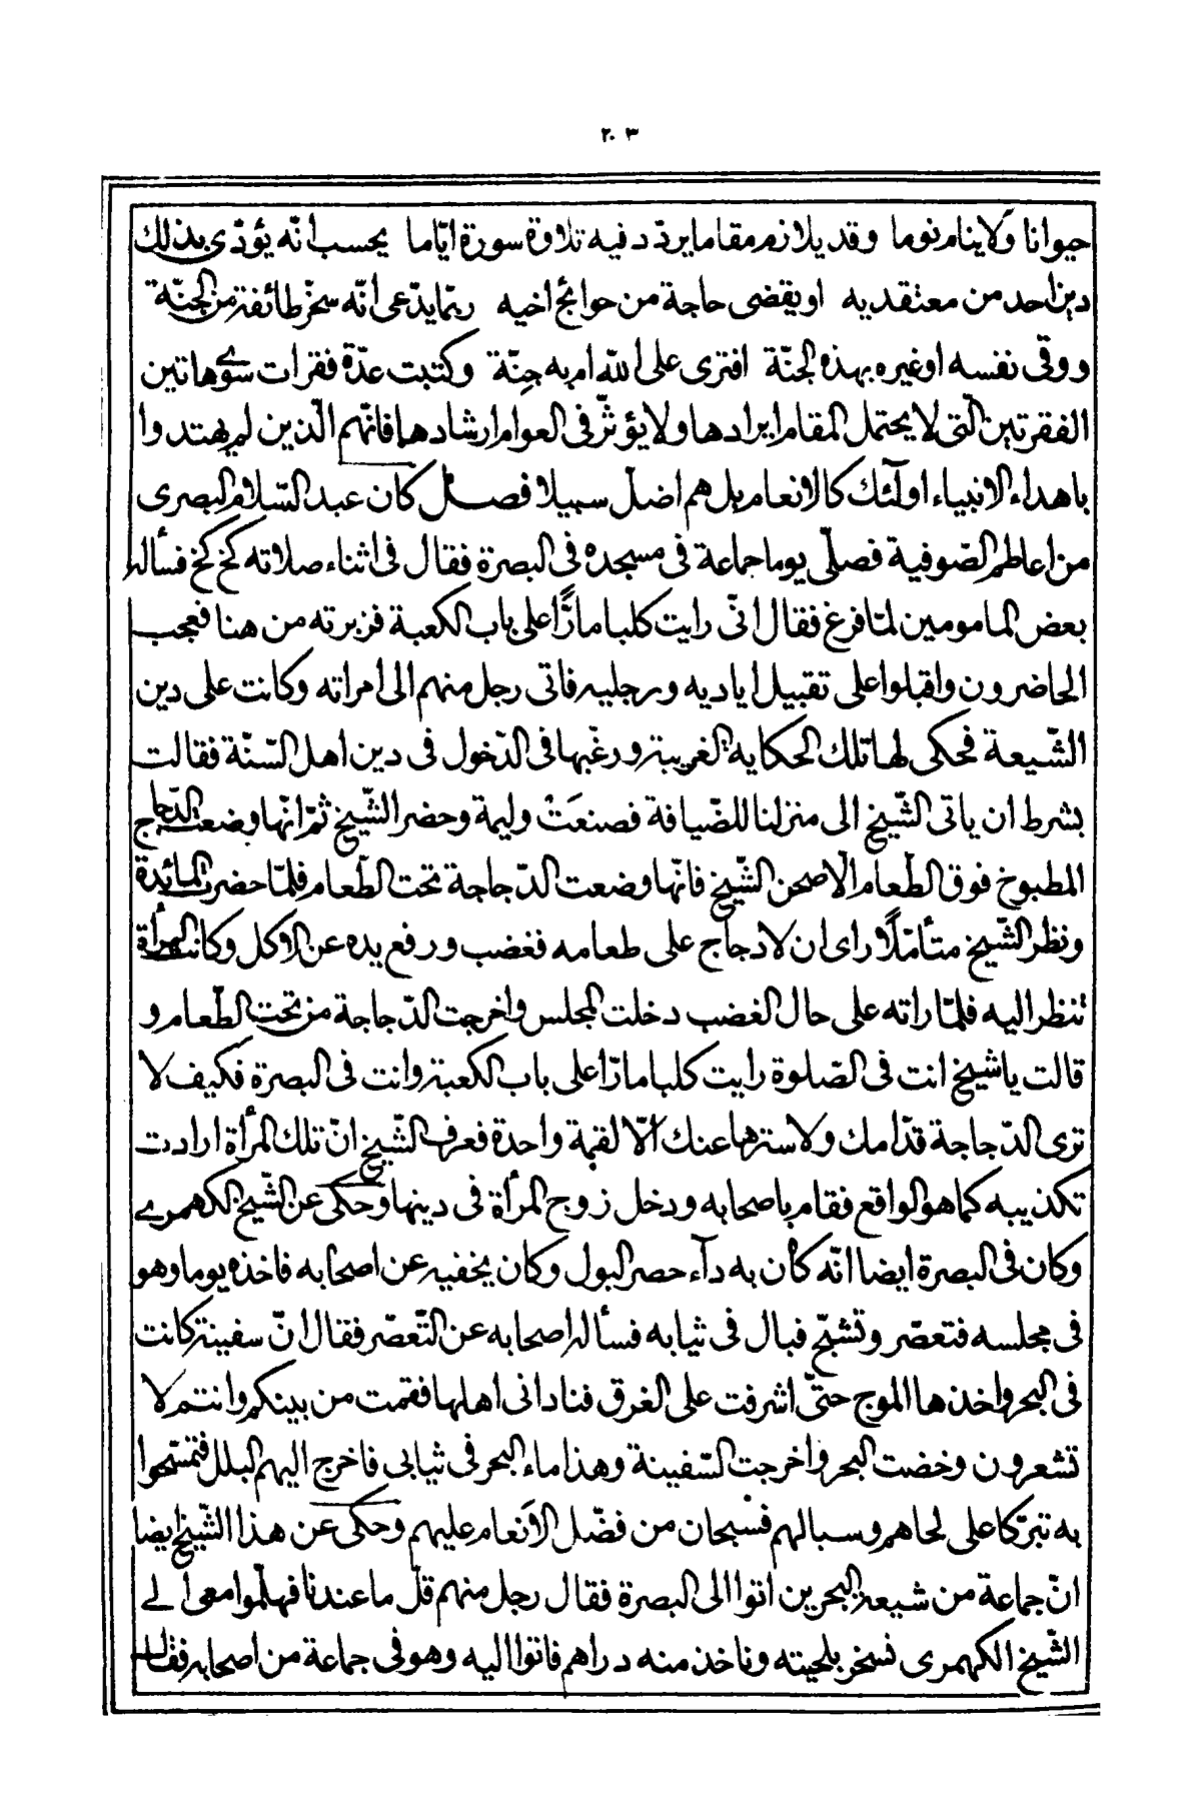 ٢٠٣
حيوانا ولا ينام نوما وقد يلازم مقاما يردّد فيه تلاوة سورة ايّاما يحسب انّه يؤدّى بذلك
دين احد من معتقديه او يقضى حاجة من حوائج اخيه ربّما يدّعى انّه سخّر طائفة من الجنّة
ووقى نفسه او غيره بهذه الجنّة افترى على اللّه ام به جِنّة وكتبت عدّة فقرات سوى هاتين
الفقرتين الّتى لا يحتمل المقام ايرادها ولا يؤثّر فى العوام ارشادها فانّهم الّذين لم يهتدوا
باهداء الانبياء اولٓئك كالانعام بل هم اضلّ سبيلا فصل كان عبد السّلام البصرى
من اعاظم الصّوفية فصلّى يوما جماعة فى مسجده فى البصرة فقال فى اثناء صلاته كخ كخ فسأله
بعض المامومين لمّا فرغ فقال انّى رايت كلبا مارًّا على باب الكعبة فزبرته من هنا فعجب
الحاضرون واقبلوا على تقبيل اياديه ورجليه فاتى رجل منهم الى امراته وكانت على دين
الشّيعة فحكى لها تلك الحكاية الغريبة ورغّبها فى الدّخول فى دين اهل السّنّة فقالت
بشرط ان ياتى الشّيخ الى منزلنا للضّيافة فصنعَتْ وليمة وحضر الشّيخ ثمّ انّها وضعت الدّجاج
المطبوخ فوق الطّعام الّا صحن الشّيخ فانّها وضعت الدّجاجة تحت الطّعام فلمّا حضرت المائدة
ونظر الشّيخ متأمّلًا راى ان لا دجاج على طعامه فغضب ورفع يده عن الاكل وكانت المرأة
تنظر اليه فلمّا راته على حال الغضب دخلت المجلس واخرجت الدّجاجة من تحت الطّعام و
قالت يا شيخ انت فى الصّلوة رايت كلبا مارّا على باب الكعبة وانت فى البصرة فكيف لا
ترى الدّجاجة قدّامك ولا سترها عنك الّا لقمة واحدة فعرف الشّيخ انّ تلك المرأة ارادت
تكذيبه كما هو الواقع فقام باصحابه ودخل زوج المرأة فى دينها وحكى عن الشّيخ الكهمرى
وكان فى البصرة ايضا انّه كان به دآء حصر البول وكان يخفيه عن اصحابه فاخذه يوما وهو
فى مجلسه فتعصّر وتشبّح فبال فى ثيابه فسأله اصحابه عن التّعصّر فقال انّ سفينة كانت
فى البحر واخذها الموج حتّى اشرفت على الغرق فنادانى اهلها فقمت من بينكم وانتم لا
تشعرون وخضت البحر واخرجت السّفينة وهذا ماء البحر فى ثيابى فاخرج اليهم البلل فتمسّحوا
به تبرّكا على لحاهم وسبالهم فسبحان من فضّل الاَنعام عليهم وحكى عن هذا الشّيخ ايضا
انّ جماعة من شيعة البحرين اتوا الى البصرة فقال رجل منهم قلّ ما عندنا فهلمّوا معى الى
الشّيخ الكهمرى نسخر بلحيته وناخذ منه دراهم فاتوا اليه وهو فى جماعة من اصحابه فقال